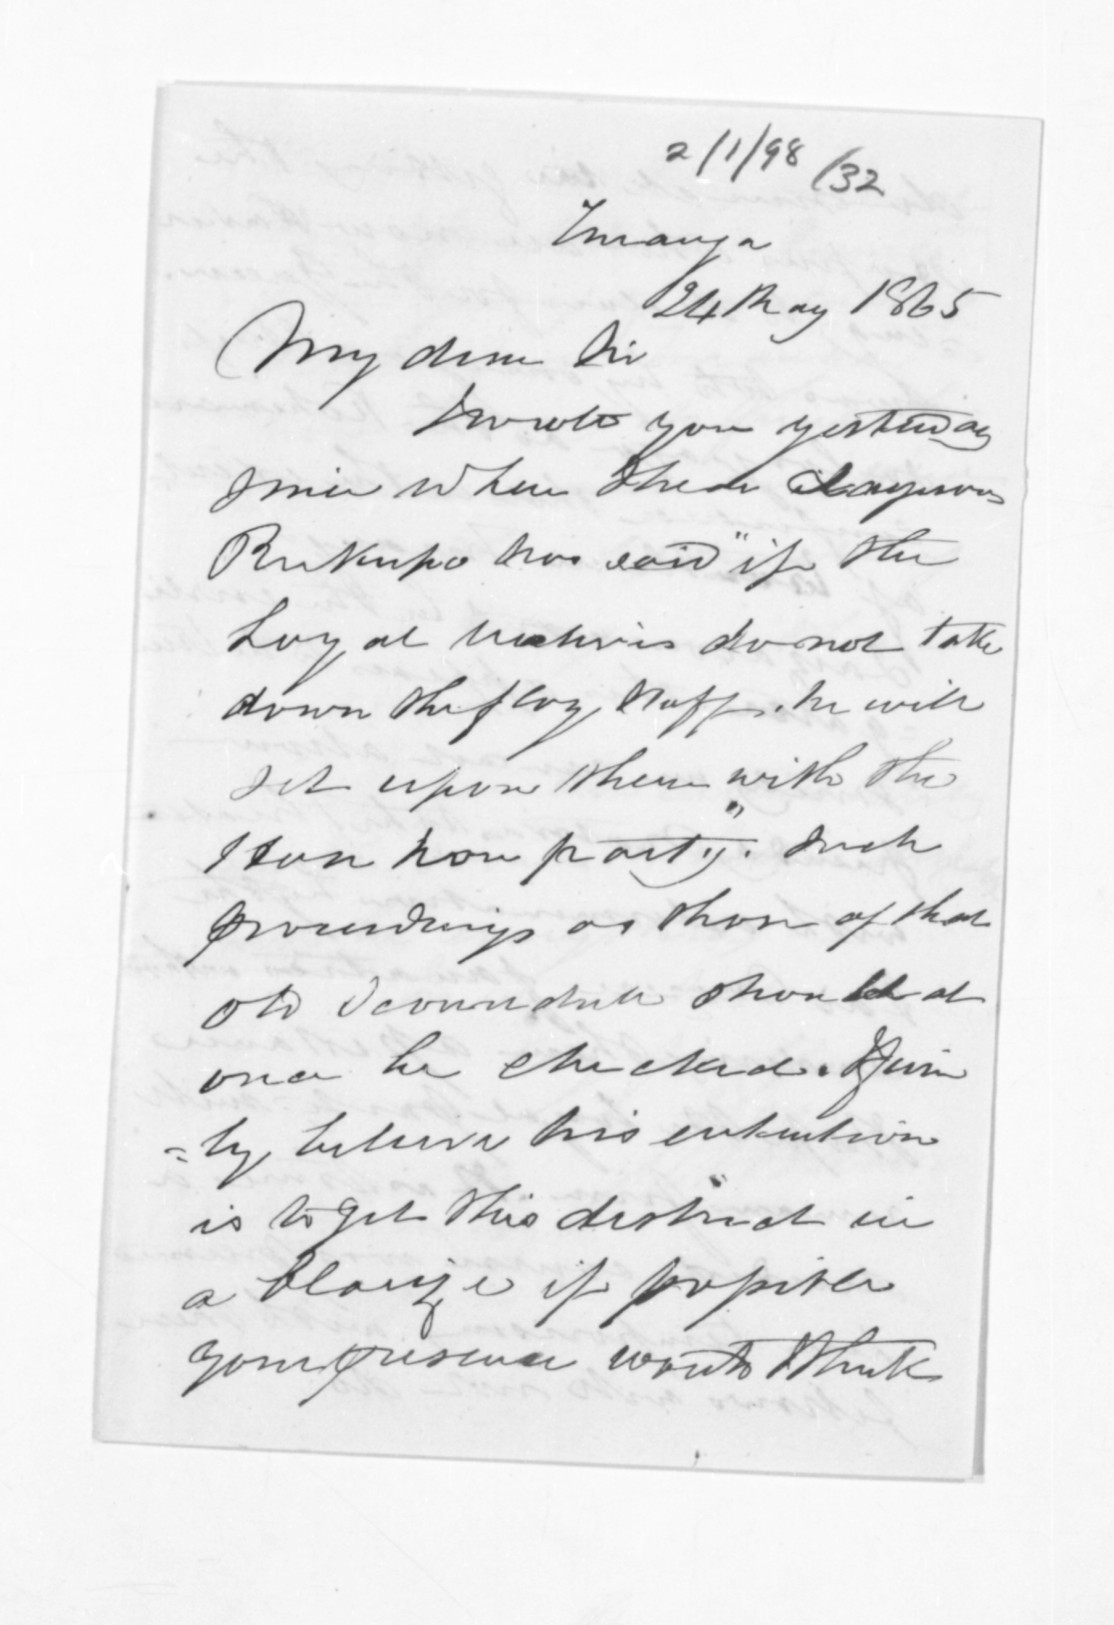 2/1/98/32
Turanga
24 May 1865
My dear Sir
I wrote you yesterday
since when I hear
Rukupo has said "if the
Loyal natives do not take
down the flag staff. he will
set upon them with the
Hau hau party". Such
proceedings as those of that
old scoundrell should at
once be checked. I firm
=ly believe his intention
is to get this district in
a blaize if possible
your presence would I think